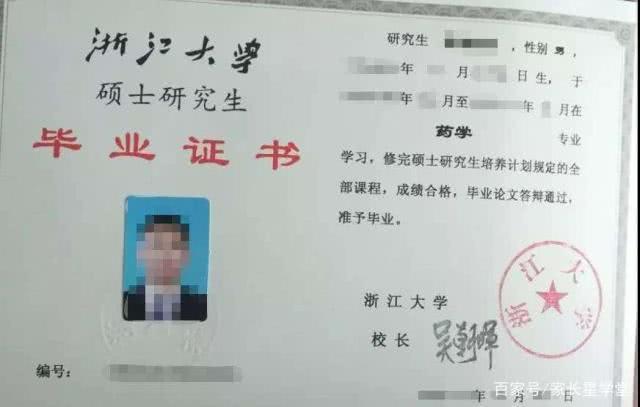 浙江大学
硕士研究生
毕业证书
编号：
研究生 ，性别 男，
年 月 日生，于
年 月至 年 月在
药学 专业
学习，修完硕士研究生培养计划规定的全
部课程，成绩合格，毕业论文答辩通过，
准予毕业。
浙江大学
校长
浙江大学
年 月 日
百家号/家长星学堂